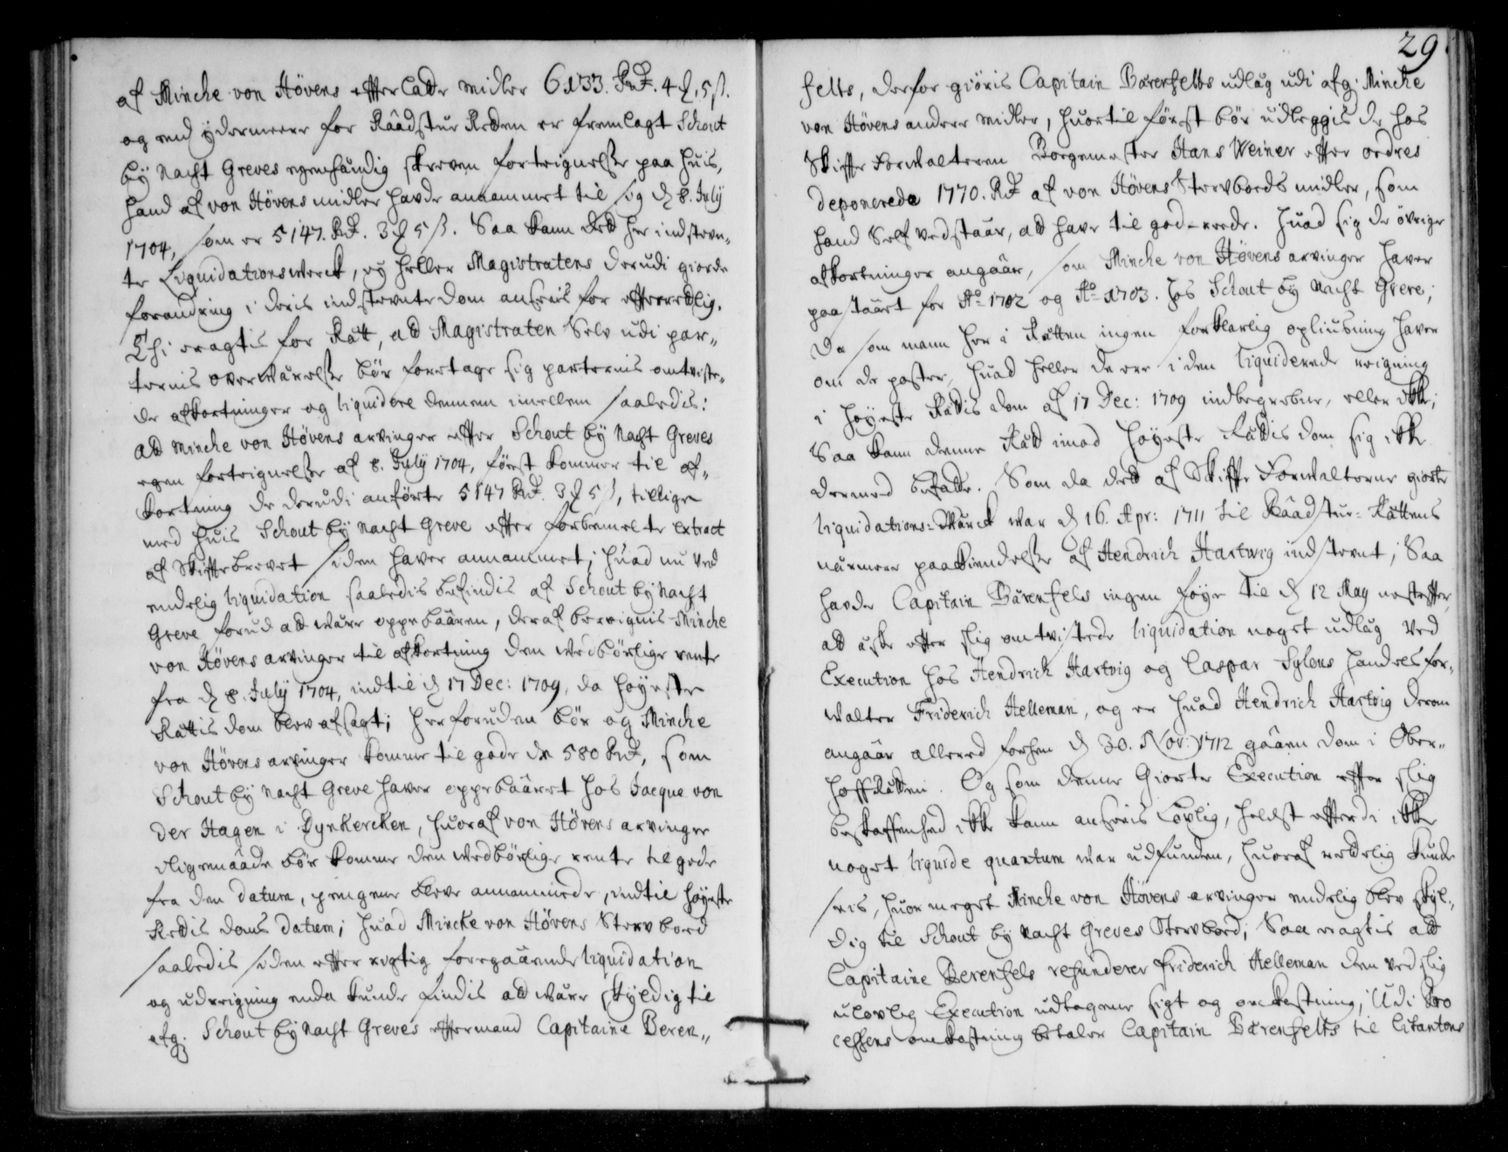 29
af Mincke von Hövens effterladte midler 6133. Rdr. 4 ₰, 5 ß.
og end ydermeere for Raadstue Retten er fremlagt Schout
by Nacht Greves egenhændig skreven forteignelse paa huis,
hand af von Hövens midler hafde annammet til sig d. 8. July
1704, som er 5147. Rdr. 3 ₰ 5 ß. Saa kand det her indstevn„
te Liquidations werck, og heller Magistratens derudi giorde
forandring i deris indstevnte dom ansees for effterretlig.
Thi eragtis for Ret, at Magistraten Selv udi par„
ternis overværelse bør foretage sig parternis omtviste„
de afkortninger og liquidere dennem imellem saaledis:
at Mincke von Hövens arvinger effter Schout by Nacht Greves
egen forteignelse af 8. July 1704, først kommer til af„
kortning de derudi anførte 5147 Rdr. 3 ₰ 5 ß, tillige
med huis Schout by Nacht Greve effter forbemelte extract
af Skifftebrevet siden haver annammet; huad nu ved
endelig liquidation saaledis befindis af Schout by Nacht
Greve forud at være oppebaaren, deraf beregnis Mincke
von Hövens arvinger til afkortning den vedbørlige rente
fra d. 8. July 1704, indtil d. 17 Dec: 1709, da høyeste
Rettis dom blev afsagt; her foruden bør og Mincke
von Hövens arvinger komme til gode de 580 Rdr, som
Schout by Nacht Greve haver oppebaaret hos Jacque von
der Hagen i Dynkercken, huoraf von Hövens arvinger
ligemaade bør komme den vedbørlige rente til gode
fra den datum, pengene bleve annammede, indtil høyeste
Rettis doms datum; huad Mincke von Hövens Stervboed
saaledis siden effter rigtig foregaaende liquidation
og udregning enda kunde findis at være skyldig til
afg. Schout by Nacht Greve's efftermand Capitaine Beren„
felts, derfor giøris Capitain Bærenfelts udlag udi afg: Mincke
von Hövens andere midler, huortil først bør udleggis de hos
Skiffte Forvalteren Borgemester Hans Weiner effter ordres
deponerede 1770. Rdr af von Hövens Stervboeds midler, som
hand Self vedstaar, at have til gode-reede. huad sig de övrige
afkortninger angaar, som Mincke von Hövens arvinger haver
paastaaet for Ao. 1702 og Ao. 1703. hos Schout by Nacht Greve;
Da som mand her i Retten ingen forklarlig opliusning haver
om de poster, huad heller de ere i den liquiderede reigning
i høyeste Rettis dom af 17 Dec: 1709 indbegreben, eller ikke;
Saa kand denne Ret imod høyeste Rettis dom sig ikke
dermed befatte. Som da det af Skiffte Forvalterne giorte
liquidations-Werck var d. 16. Apr: 1711 til Raadstue-Rettens
nærmere paakiendelse af Hendrich Hartwig indstevnt; Saa
havde Capitain Bärenfels ingen føye til d. 12 May nesteffter,
at æske effter slig omtvistede liquidation noget udlag ved
Execution hos Hendrich Hartvig og Caspar Sylens handels for„
walter Friderich Helleman, og er huad Hendrich Hartvig derom
angaar allered forhen d. 30. Nov: 1712 gaaen dom i Ober„
hoffRetten. Og som denne Giorte Execution effter slig
beskaffenhed ikke kand ansees Lovlig, heldst effterdi ikke
noget liquide quantum war udfunden, huoraf endelig kunde
sees, huor meget Mincke von Hövens arvinger endelig blev skyl„
dig til Schout by Nacht Greves Stervboed; Saa eragtis at
Capitaine Berenfels refunderer Friderich Helleman den ved slig
ulovlig Execution udtagene sigt og omkostning; Udi Pro
cessens omkostning betaler Capitain Bærenfelts til Citantens